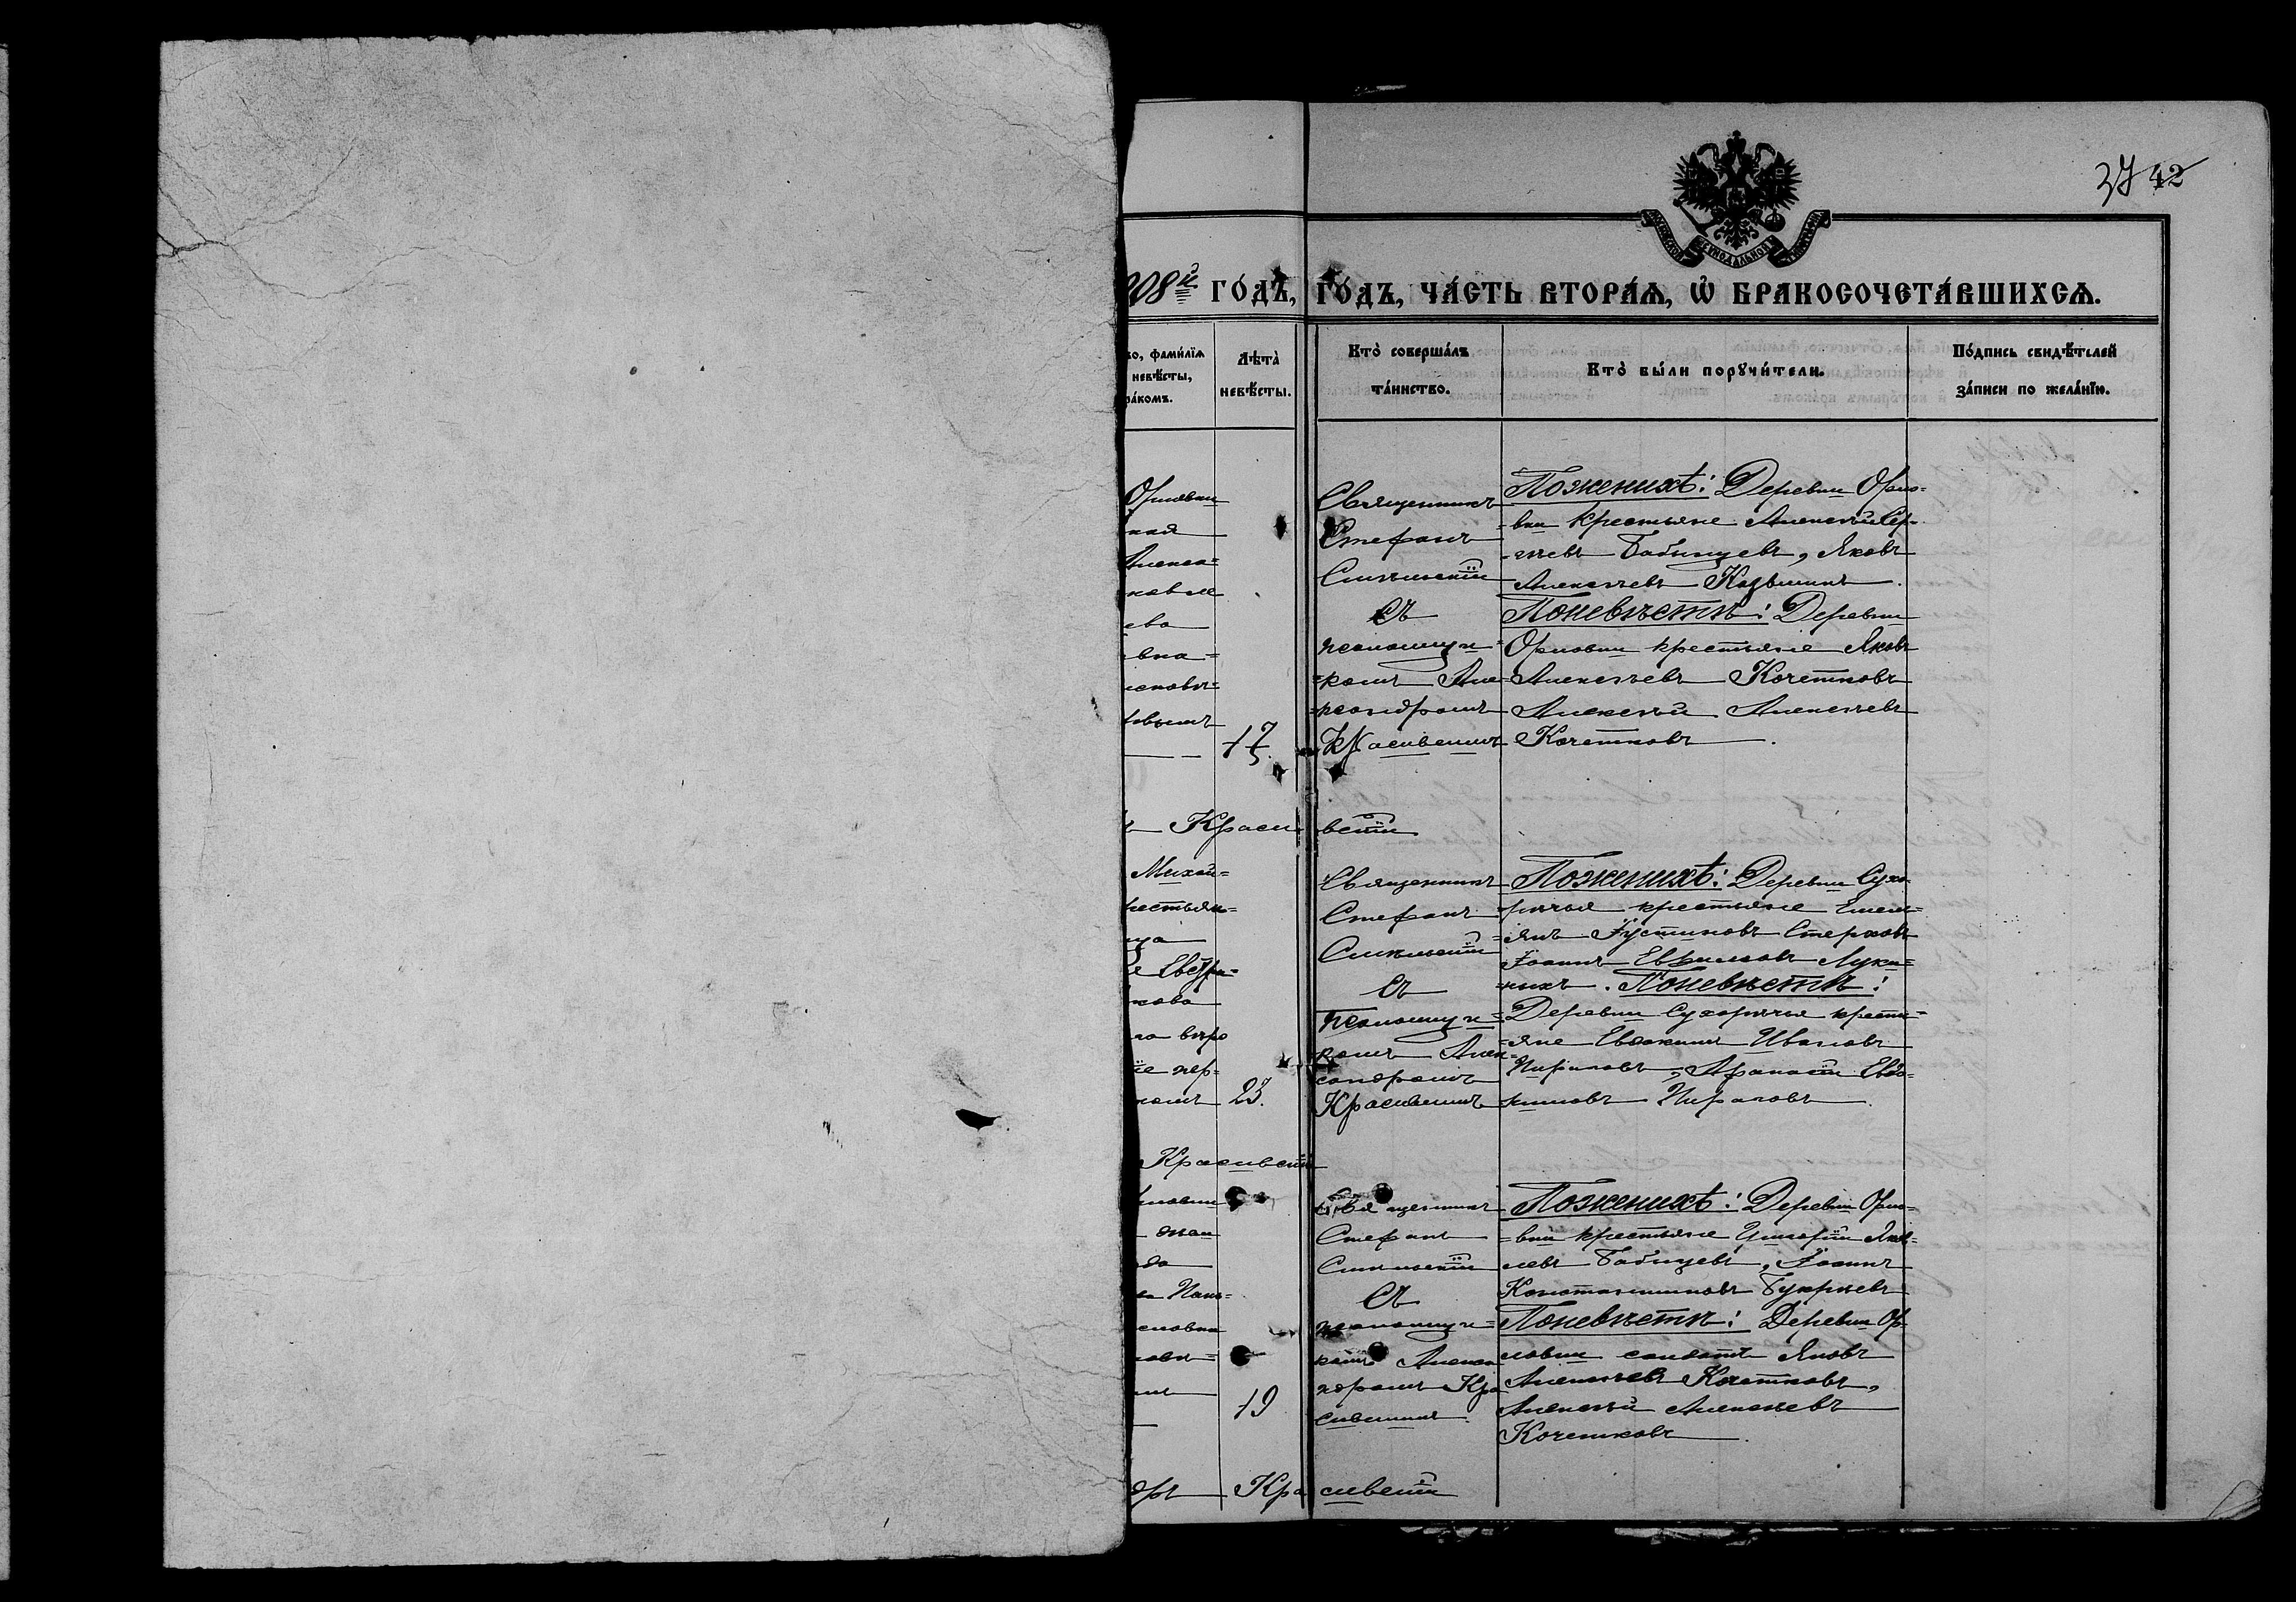 37 42
908й го́дъ, го́дъ, ча́сть втора́ѧ, ѡ҆ бракосочета́вшихсѧ.
во, фами́лїѧ
невѣ́сты,
ра́комъ.
Лѣта̀
невѣ́сты.
Кто̀ соверша́лъ
та́инство.
Кто̀ бы́ли порꙋчи́тели.
По́дпись свидѣ́телей
за́писи по жела́нїю.
Орловки
кая
Алекса=
ковле
ева
вна=
товымъ
17
Священникъ
Стефанъ
съ
псаломщи=
комъ Але=
ксандромъ
Красивскимъ
Поженихѣ: Деревни Орло=
=вки крестьяне Алексѣй Сер=
=гѣевъ Бабищевъ, Яковъ
Алексѣевъ Козьминъ.
Поневѣстѣ: Деревни
Орловки крестьяне Яковъ
Алексѣевъ Кочетковъ
Алексѣй Алексѣевъ
Кочетковъ.
Краси вскій
Михай=
рестьян=
ица
кова
го вѣро
іе пер=
комъ 23.
Священникъ
Стефанъ
съ
псаломщи=
комъ Алек=
сандромъ
Красивскимъ
Поженихѣ: Деревни Сухо=
=рѣчья крестьяне Емель=
=янъ Іустиновъ Стерховъ
Іоаннъ Луки=
=ныхъ. Поневѣстѣ:
Деревни Сухорѣчья кресть=
=яне Евдокимъ Ивановъ
Пираловъ, Афанасій Евдо=
=кимовъ Пираловъ.
Красивскій
ловки
да
словна
19
Священникъ
Стефанъ
съ
псаломщи=
комъ Алекса
ндромъ Кра
сивскимъ
Поженихѣ: Деревни Орло=
=вки крестьяне Григорій Яков=
левъ Бабищевъ, Іоаннъ
Константиновъ Букрѣевъ
Поневѣстѣ: Деревни Ор=
ловки солдатъ Яковъ
Алексѣевъ Кочетковъ,
Алексѣй Алексѣевъ
Кочетковъ.
дръ Кра сивскій